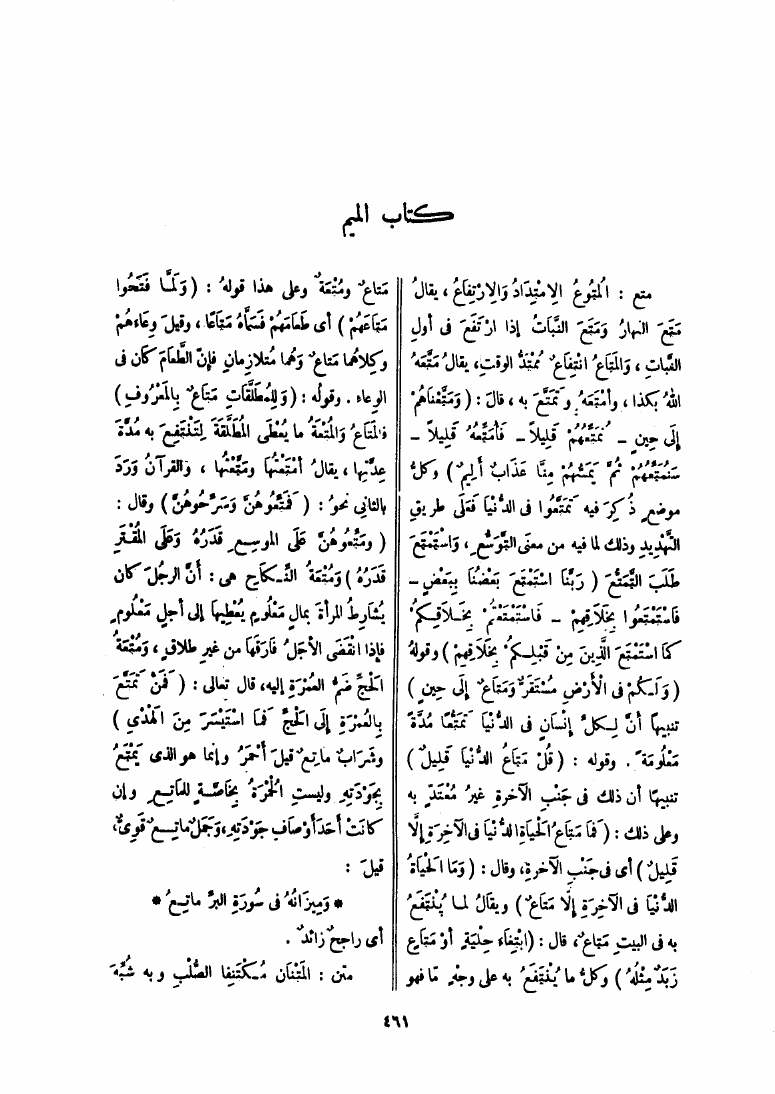 كتاب الميم
متع : الْمُتُوعُ الِامْتِدَادُ وَالِارْتِفَاعُ ، يقالُ
مَتَعَ النهارُ وَمَتَعَ النَّبَاتُ إذا ارْتَفَعَ فى أولِ
النَّبات ، وَالمَتَاعُ انْتِفَاعٌ مُمْتَدُّ الوقتِ، يقالُ مَتَّعَهُ
اللهُ بكذا ، وأمْتَعَهُ وتَمَتَّعَ به ، قالَ : ( وَمَتَّعْنَاهُمْ
إلَى حِينٍ – نُمَتِّعُهُمْ قَلِيلاً – فَأُمَتِّعُهُ قَلِيلاً –
سَنُمَتِّعُهُمْ ثُمَّ يَمَسُّهُمْ مِنَّا عَذَابٌ أَلِيمٌ ) وكلُّ
موضعٍ ذُكِرَ فيه تَمَتَّعُوا فى الدُّنْيَا فَعَلَى طريقِ
التَّهْدِيدِ وذلك لما فيه من معنى التَّوَسُّعِ ، وَاسْتَمْتَعَ
طَلَبَ التَّمَتُّعَ ( رَبَّنَا اسْتَمْتَعَ بَعْضُنَا بِبَعْضٍ –
فَاسْتَمْتَعُوا بِخَلَاقِهِمْ – فَاسْتَمْتَعْتُمْ بِخَلَاقِكُمْ
كَمَا اسْتَمْتَعَ الَّذِينَ مِنْ قَبْلِكُمْ بِخَلَاقِهِمْ ) وقولهُ
( وَلَكُمْ فى الْأَرْضِ مُسْتَقَرٌّ وَمَتَاعٌ إلَى حِينٍ )
تنبيهاً أنَّ لِكلِّ إنْسَانٍ فى الدُّنْيَا تَمَتُّعًا مُدَّةً
مَعْلُومَةً . وقوله : ( قُلْ مَتَاعُ الدُّنْيَا قَلِيلٌ )
تنبيهًا أن ذلك فى جَنْبِ الآخرةِ غيرُ مُعْتَدٍّ به
وعلى ذلك : ( فَمَا مَتَاعُ الحَيَاةِ الدُّنْيَا فى الآخِرَةِ إلَّا
قَلِيلٌ ) أى فى جَنْبِ الآخرةِ، وقال : ( وَمَا الحَيَاةُ
الدُّنْيَا فى الآخِرَةِ إلَّا مَتَاعٌ ) ويقالُ لما يُنْتَفَعُ
به فى البيتِ مَتَاعٌ، قال : ( ابْتِغَاءَ حِلْيَةٍ أَوْ مَتَاعٍ
زَبَدٌ مِثْلُهُ ) وكلُّ ما يُنْتَفَعُ به على وجْهٍ مَّا فهو
مَتاعٌ ومُتْعَةٌ وعلى هذا قولهُ : ( وَلَمَّا فَتَحُوا
مَتَاعَهُمْ ) أى طَعَامَهُمْ فَسَمَّاهُ مَتَاعًا ، وقيلَ وِعَاءَهُمْ
وكلاهُمَا مَتاعٌ وَهُمَا مُتَلَازِمانِ فإنّ الطَّعَامَ كان فى
الوِعاء . وقولُه : ( وَلِلْمُطَلَّقَاتِ مَتَاعٌ بِالْمَعْرُوفِ )
فالمَتَاعُ وَالْمُتْعَةُ ما يُعْطَى الْمُطَلَّقَةَ لِتَنْتَفِعَ به مُدَّةَ
عِدَّتِها ، يقالُ أمْتَعْتُها ومَتَّعْتُها ، وَالقرآنُ وَرَدَ
بالثانِى نحوُ : ( فَمَتِّعُوهُنَّ وَسَرِّحُوهُنَّ ) وقال :
( وَمَتِّعُوهُنَّ عَلَى الموسِعِ قَدَرُهُ وَعَلَى الْمُقْتِرِ
قَدَرُهُ ) وَمُتْعَةُ النِّكَاحِ هى : أنَّ الرجلَ كان
يُشارِطُ المرأةَ بمالٍ مَعْلُومٍ يُعْطِيهَا إلى أجلٍ مَعْلُومٍ
فإذا انْقَضَى الأجَلُ فَارَقَهَا من غيرِ طلاقٍ ، وَمُتْعَةُ
الحَجِّ ضَمُّ العُمْرَةِ إليه، قال تعالى : ( فَمَنْ تَمَتَّعَ
بِالْعُمْرَةِ إلَى الحَجِّ فَمَا اسْتَيْسَرَ مِنَ الهَدْيِ )
وشَرَابٌ ماتِعٌ قيلَ أحْمَرُ وإنما هو الذى يَمْتَعُ
بِجَوْدَتِهِ وليستِ الحُمْرَةُ بِخَاصَّةٍ لِلْماتِعِ وإن
كانتْ أحَدَ أَوْصَافِ جَوْدَتِهِ، وَجَمَلٌ ماتِعٌ قَوِىٌّ،
قيلَ :
* وَمِيزَانُهُ فى سُورَةِ البرِّ ماتِعُ *
أى راجحٌ زائدٌ .
متن : المَتْنَانِ مُكْتَنِفَا الصُّلْبِ وبه شُبِّهَ
٤٦١